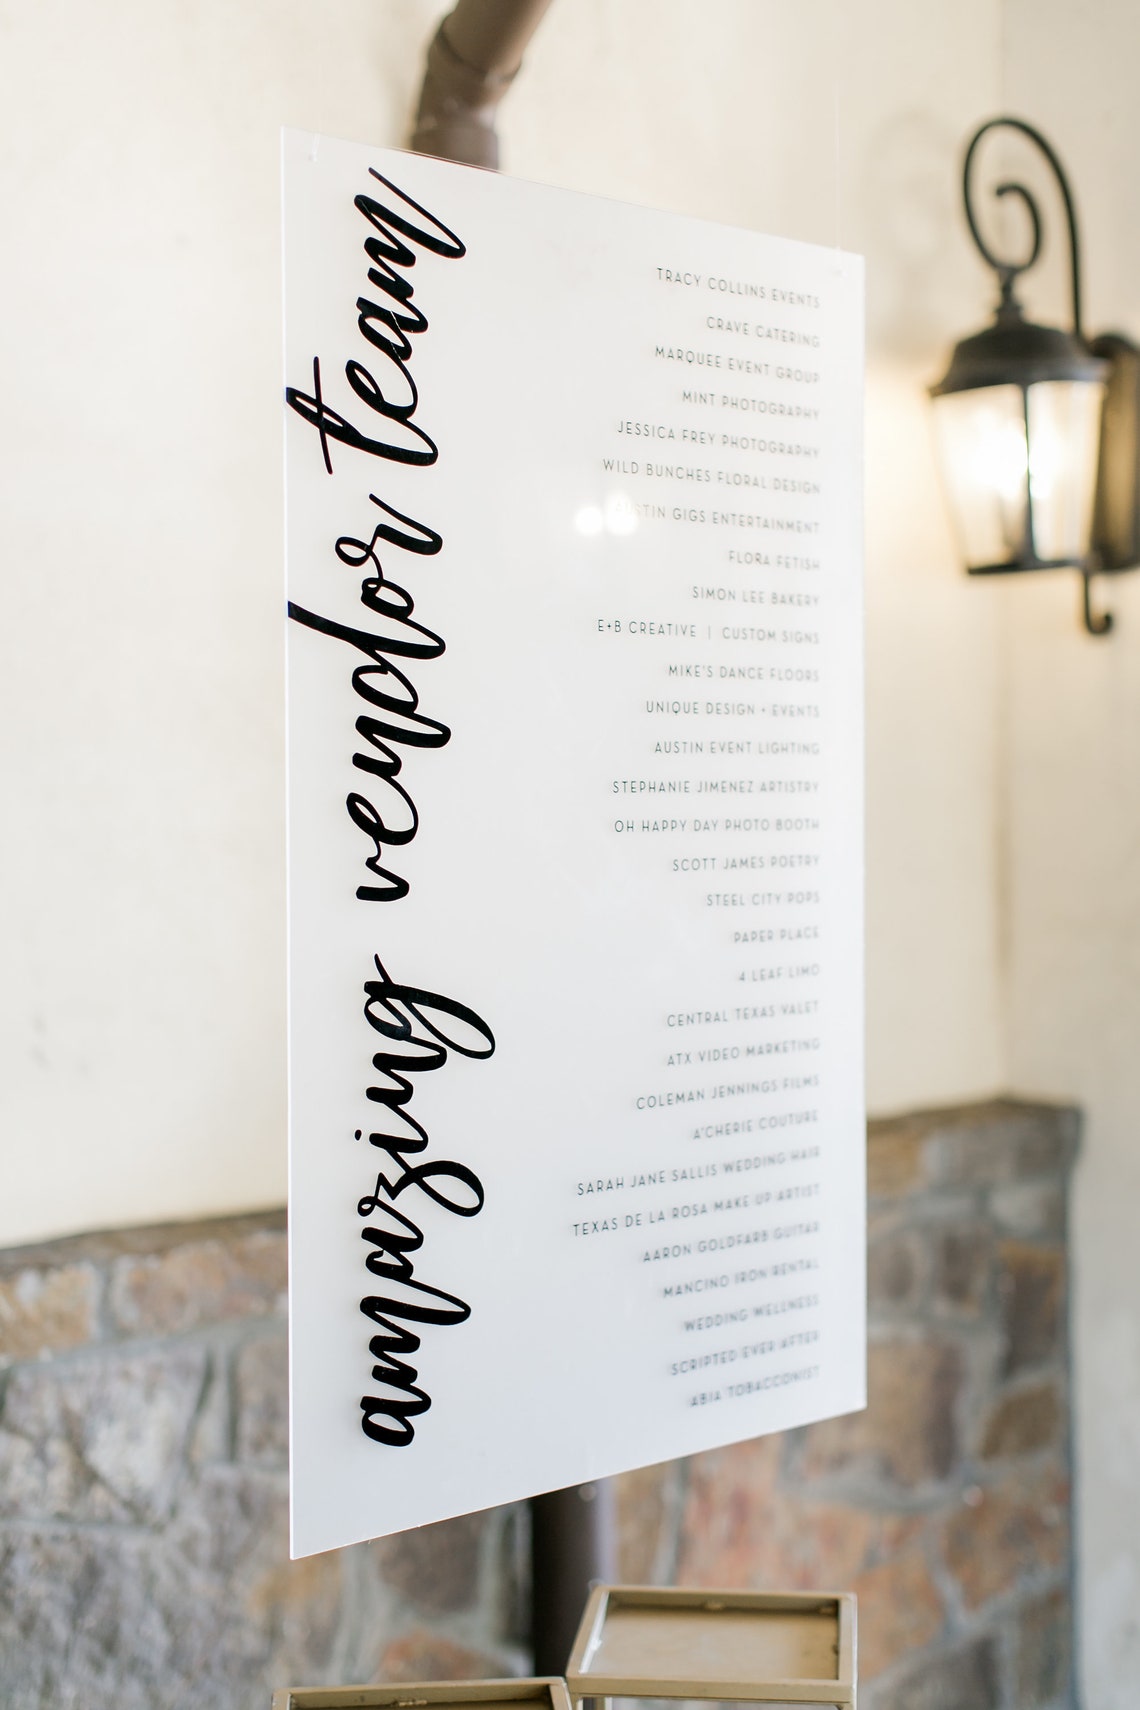 amazing vendor team
TRACY COLLINS EVENTS
CRAVE CATERING
MARQUEE EVENT GROUP
MINT PHOTOGRAPHY
JESSICA FREY PHOTOGRAPHY
WILD BUNCHES FLORAL DESIGN
AUSTIN GIGS ENTERTAINMENT
FLORA FETISH
SIMON LEE BAKERY
E+B CREATIVE | CUSTOM SIGNS
MIKE'S DANCE FLOORS
UNIQUE DESIGN + EVENTS
AUSTIN EVENT LIGHTING
STEPHANIE JIMENEZ ARTISTRY
OH HAPPY DAY PHOTO BOOTH
SCOTT JAMES POETRY
STEEL CITY POPS
PAPER PLACE
4 LEAF LIMO
CENTRAL TEXAS VALET
ATX VIDEO MARKETING
COLEMAN JENNINGS FILMS
A'CHERIE COUTURE
SARAH JANE SALLIS WEDDING HAIR
TEXAS DE LA ROSA MAKE UP ARTIST
AARON GOLDFARB GUITAR
MANCINO IRON RENTAL
WEDDING WELLNESS
SCRIPTED EVER AFTER
ABIA TOBACCONIST